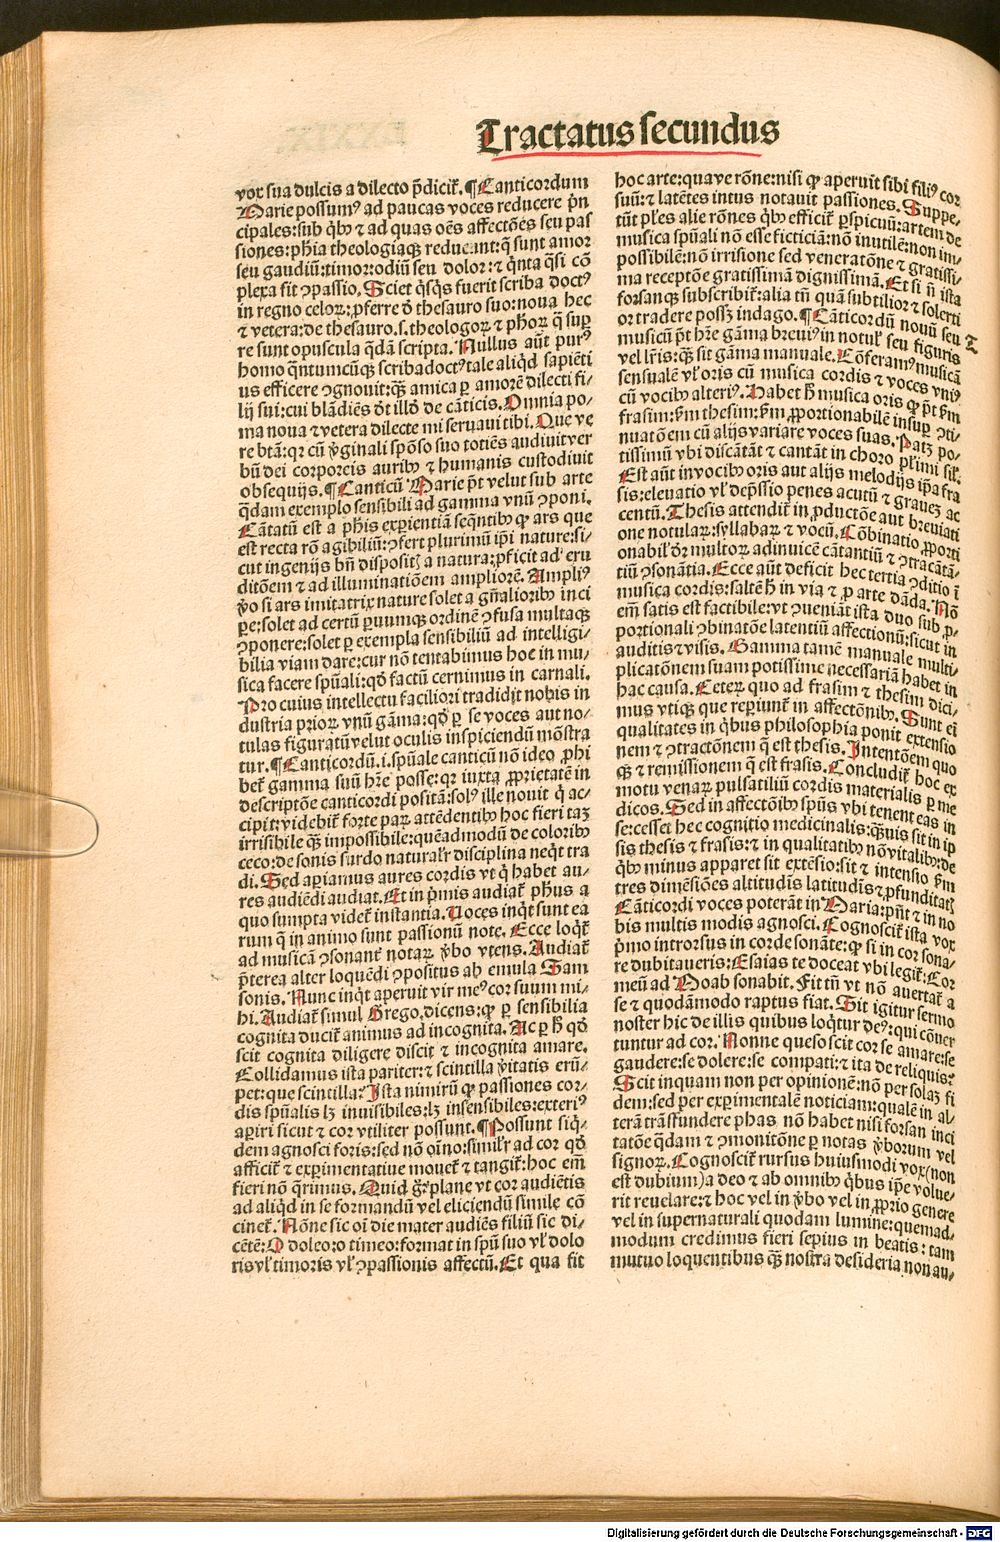 Tractatus secundus
vox sua dulcis a dilecto p̄dicit̄. ¶ Canticordum
Marie possumꝰ ad paucas voces reducere p̄n
cipales: sub qͥbꝫ ⁊ ad quas oēs affectōes seu pas
siones: phīa theologiaqꝫ reducant: q̄ sunt amor
seu gaudiū: timor: odiū seu dolor: ⁊ qͥnta qͣsi cō
plexa fit ꝯpassio. Sciet qͥsqͥs fuerit scriba doctꝰ
in regno celoꝝ: ꝓferre ō thesauro suo: noua hec
⁊ vetera: de thesauro .s. theologoꝝ ⁊ phoꝝ q̄ suꝑ
re sunt opuscula qͥdā scripta. Nullus aūt purꝰ
homo qͣntumcūqꝫ scriba doctꝰ tale aliqͥd sapiēti
us efficere ꝯgnouit: qꝫ amica ꝑ amorē dilecti fi⸗
lij sui: cui blādiēs ōt illō de cāticis. Omnia po⸗
ma noua ⁊ vetera dilecte mi seruaui tibi. Que ve
re btā: qꝛ cū v̄ginali spōso suo totiēs audiuit ver
bū dei corporeis auribꝫ ⁊ humanis custodiuit
obsequijs. ¶ Canticū Marie pt̄ velut sub arte
qͣdam exemplo sensibili ad gamma vnū ꝯponi.
Cātatū est a phīs exꝑientiā seqͥntibꝫ qꝫ ars que
est recta rō agibiliū: ꝯfert plurimū ip̄i nature: si⸗
cut ingenijs bn̄ dispositꝭ a natura: ꝓficit ad eru
ditōem ⁊ ad illuminatiōem ampliorē. Ampliꝰ
v̄o si ars imitatrix nature solet a gn̄alioribꝫ inci
pe: solet ad certū ꝑuumqꝫ ordinē ꝯfusa multaqꝫ
ꝯponere: solet ꝑ exempla sensibiliū ad intelligi⸗
bilia viam dare: cur nō tentabimus hoc in mu⸗
sica facere spūali: qd̄ factū cernimus in carnali.
Pro cuius intellectu faciliori tradidit nobis in
dustria prioꝝ vnū gāma: qd̄ ꝑ se voces aut no⸗
tulas figuratū velut oculis inspiciendū mōstra
tur. ¶ Canticordū .i. spūale canticū nō ideo ꝓhi
bet̄ gammā suū hr̄e posse: qꝛ iuxta ꝓprietatē in
descriptōe canticordi positā: solꝰ ille nouit q̄ ac⸗
cipit: videbit̄ forte paꝝ attēdentibꝫ hoc fieri taꝫ
irrisibile qꝫ impossibile: quēadmodū de coloribꝫ
ceco: de sonis surdo naturalr̄ disciplina neqͥt tra
di. Sed aꝑiamus aures cordis vt q̄ habet au⸗
res audiēdi audiat. Et in p̄mis audiat̄ phūs a
quo sumpta videt̄ instantia. Voces inqͥt sunt ea
rum q̄ in animo sunt passionū note. Ecce loqͥt̄
ad musicā ꝯsonant̄ notaꝝ v̄bo vtens. Audiat̄
p̄terea alter loquēdi ꝯpositus ab emula Sam
sonis. Nunc inqͥt aperuit vir meꝰ cor suum mi⸗
hi. Audiat̄ simul Grego. dicens: qꝫ ꝑ sensibilia
cognita ducit̄ animus ad incognita. Ac ꝑ h̄ qd̄
scit cognita diligere discit ⁊ incognita amare.
Collidamus ista pariter: ⁊ scintilla v̄itatis erū⸗
pet: que scintilla? Ista nimirū qꝫ passiones cor⸗
dis spūalis lꝫ inuisibiles: lꝫ insensibiles: exteriꝰ
aꝑiri sicut ⁊ cor vtiliter possunt. ¶ Possunt siqͥ⸗
dem agnosci foris: sed nō oīno: similr̄ ad cor qd̄
afficit̄ ⁊ exꝑimentatiue mouet̄ ⁊ tangit̄: hoc em̄
fieri nō q̄rimus. Quid gͦ? plane vt cor audiētis
ad aliqͥd in se formandū vel eliciendū simile cō
cinet̄. Nōne sic oī die mater audiēs filiū sic di⸗
cētē: O doleo: o timeo: format in spū suo vl̄ dolo
ris vl̄ timoris vl̄ ꝯpassionis affectū. Et qua fit
hoc arte: quave rōne: nisi qꝫ aperuit sibi filiꝰ cor
suū: ⁊ latētes intus notauit passiones. Suppe⸗
tūt pl̄es alie rōnes qͥbꝫ efficit̄ ꝑspicuū: artem de
musica spūali nō esse ficticiā: nō inutilē: non im⸗
possibilē: nō irrisione sed veneratōne ⁊ gratissi⸗
ma receptōe gratissimā dignissimā. Et si n̄ ista
forsanqꝫ subscribit̄: alia tn̄ quā subtilior ⁊ solerti
or tradere possꝫ indago. ¶ Cāticordū nouū seu
musicū pt̄ hr̄e gāma breuiꝰ in notul̄ seu figuris
vel lr̄is: qꝫ sit gāma manuale. Cōferamꝰ musicā
sensualē vl̄ oris cū musica cordis ⁊ voces vniꝰ
cū vocibꝫ alteriꝰ. Habet h̄ musica oris qꝫ pt̄ fm̄
frasim: fm̄ thesim: fm̄ ꝓportionabilē insuꝑ ꝯti⸗
nuatōem cū alijs variare voces suas. Patꝫ po⸗
tissimū vbi discātāt ⁊ cantāt in choro pl̄imi sil̄.
Est aūt in vocibꝫ oris aut alijs melodijs ip̄a fra
sis: eleuatio vl̄ dep̄ssio penes acutū ⁊ grauēꝫ ac
centū. Thesis attendit̄ in ꝓductōe aut breuiati
one notulaꝝ: syllabaꝝ ⁊ vocū. Cōbinatio ꝓporti
onabil̄ ōꝛ multoꝝ adinuicē cātantiū ⁊ ꝯtractā⸗
tiū ꝯsonātia. Ecce aūt deficit hec tertia ꝯditio ī
musica cordis: saltē h̄ in via ⁊ ꝑ arte dāda. Nō
em̄ satis est factibile: vt ꝯueniāt ista duo sub ꝓ⸗
portionali ꝯbinatōe latentiū affectionū: sicut in
auditis ⁊ visis. Gamma tamē manuale multi⸗
plicatōnem suam potissime necessariā habet in
hac causa. Ceteꝝ quo ad frasim ⁊ thesim dici⸗
mus vtiqꝫ que reꝑiunt̄ in affectōnibꝫ. Sunt em̄
qualitates in qͥbus philosophia ponit extensio
nem ⁊ ꝯtractōnem q̄ est thesis. Intentōem quo
qꝫ ⁊ remissionem q̄ est frasis. Concludit̄ hoc ex
motu venaꝝ pulsatiliū cordis materialis ꝑ me
dicos. Sed in affectōibꝫ spūs vbi tenent eas in
se: cesset hec cognitio medicinalis: qͣuis sit in ip
sis thesis ⁊ frasis: ⁊ in qualitatibꝫ nō vitalibꝫ: de
qͥbꝫ minus apparet sit extēsio: sit ⁊ intensio fm̄
tres dimēsiōes altitudīs latitudīs ⁊ ꝓfunditatꝭ
Cāticordi voces poterāt in Maria: pn̄t ⁊ in no
bis multis modis agnosci. Cognoscit̄ ista vox
p̄mo introrsus in corde sonāte: qꝫ si in cor sona⸗
re dubitaueris: Esaias te doceat vbi legit̄: Cor
meū ad Moab sonabit. Fit tn̄ vt nō auertat̄ a
se ⁊ quodāmodo raptus fiat. Sit igitur sermo
noster hic de illis quibus loqͥtur deꝰ: qui cōuer
tuntur ad cor. Nonne queso scit cor se amare: se
gaudere: se dolere: se compati: ⁊ ita de reliquis?
Scit inquam non per opinionē: nō per solaꝫ fi
dem: sed per exꝑimentalē noticiam: qualē in al⸗
terā trāsfundere phas nō habet nisi forsan inci
tatōe qͣdam ⁊ ꝯmonitōne ꝑ notas v̄borum vel
signoꝝ. Cognoscit̄ rursus huiusmodi vox (non
est dubium) a deo ⁊ ab omnibꝫ qͥbus ip̄e volue⸗
rit reuelare: ⁊ hoc vel in v̄bo vel in ꝓprio genere
vel in supernaturali quodam lumine: quemad⸗
modum credimus fieri sepius in beatis: tam
mutuo loquentibus qꝫ nostra desideria non au⸗
T
Digitalisierung gefördert durch die Deutsche Forschungsgemeinschaft - DFG